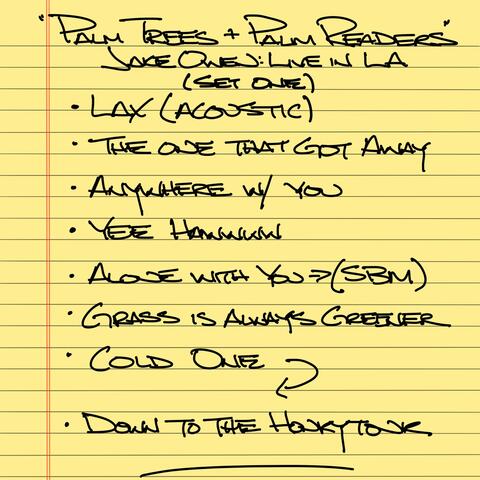 "PALM TREES + PALM READERS"
JAKE OWEN: LIVE IN LA
(SET ONE)
• LAX (ACOUSTIC)
• THE ONE THAT GOT AWAY
• ANYWHERE W/ YOU
• YEE HAWWWW
• ALONE WITH YOU => (SBM)
• GRASS IS ALWAYS GREENER
• COLD ONE
• DOWN TO THE HONKYTONK